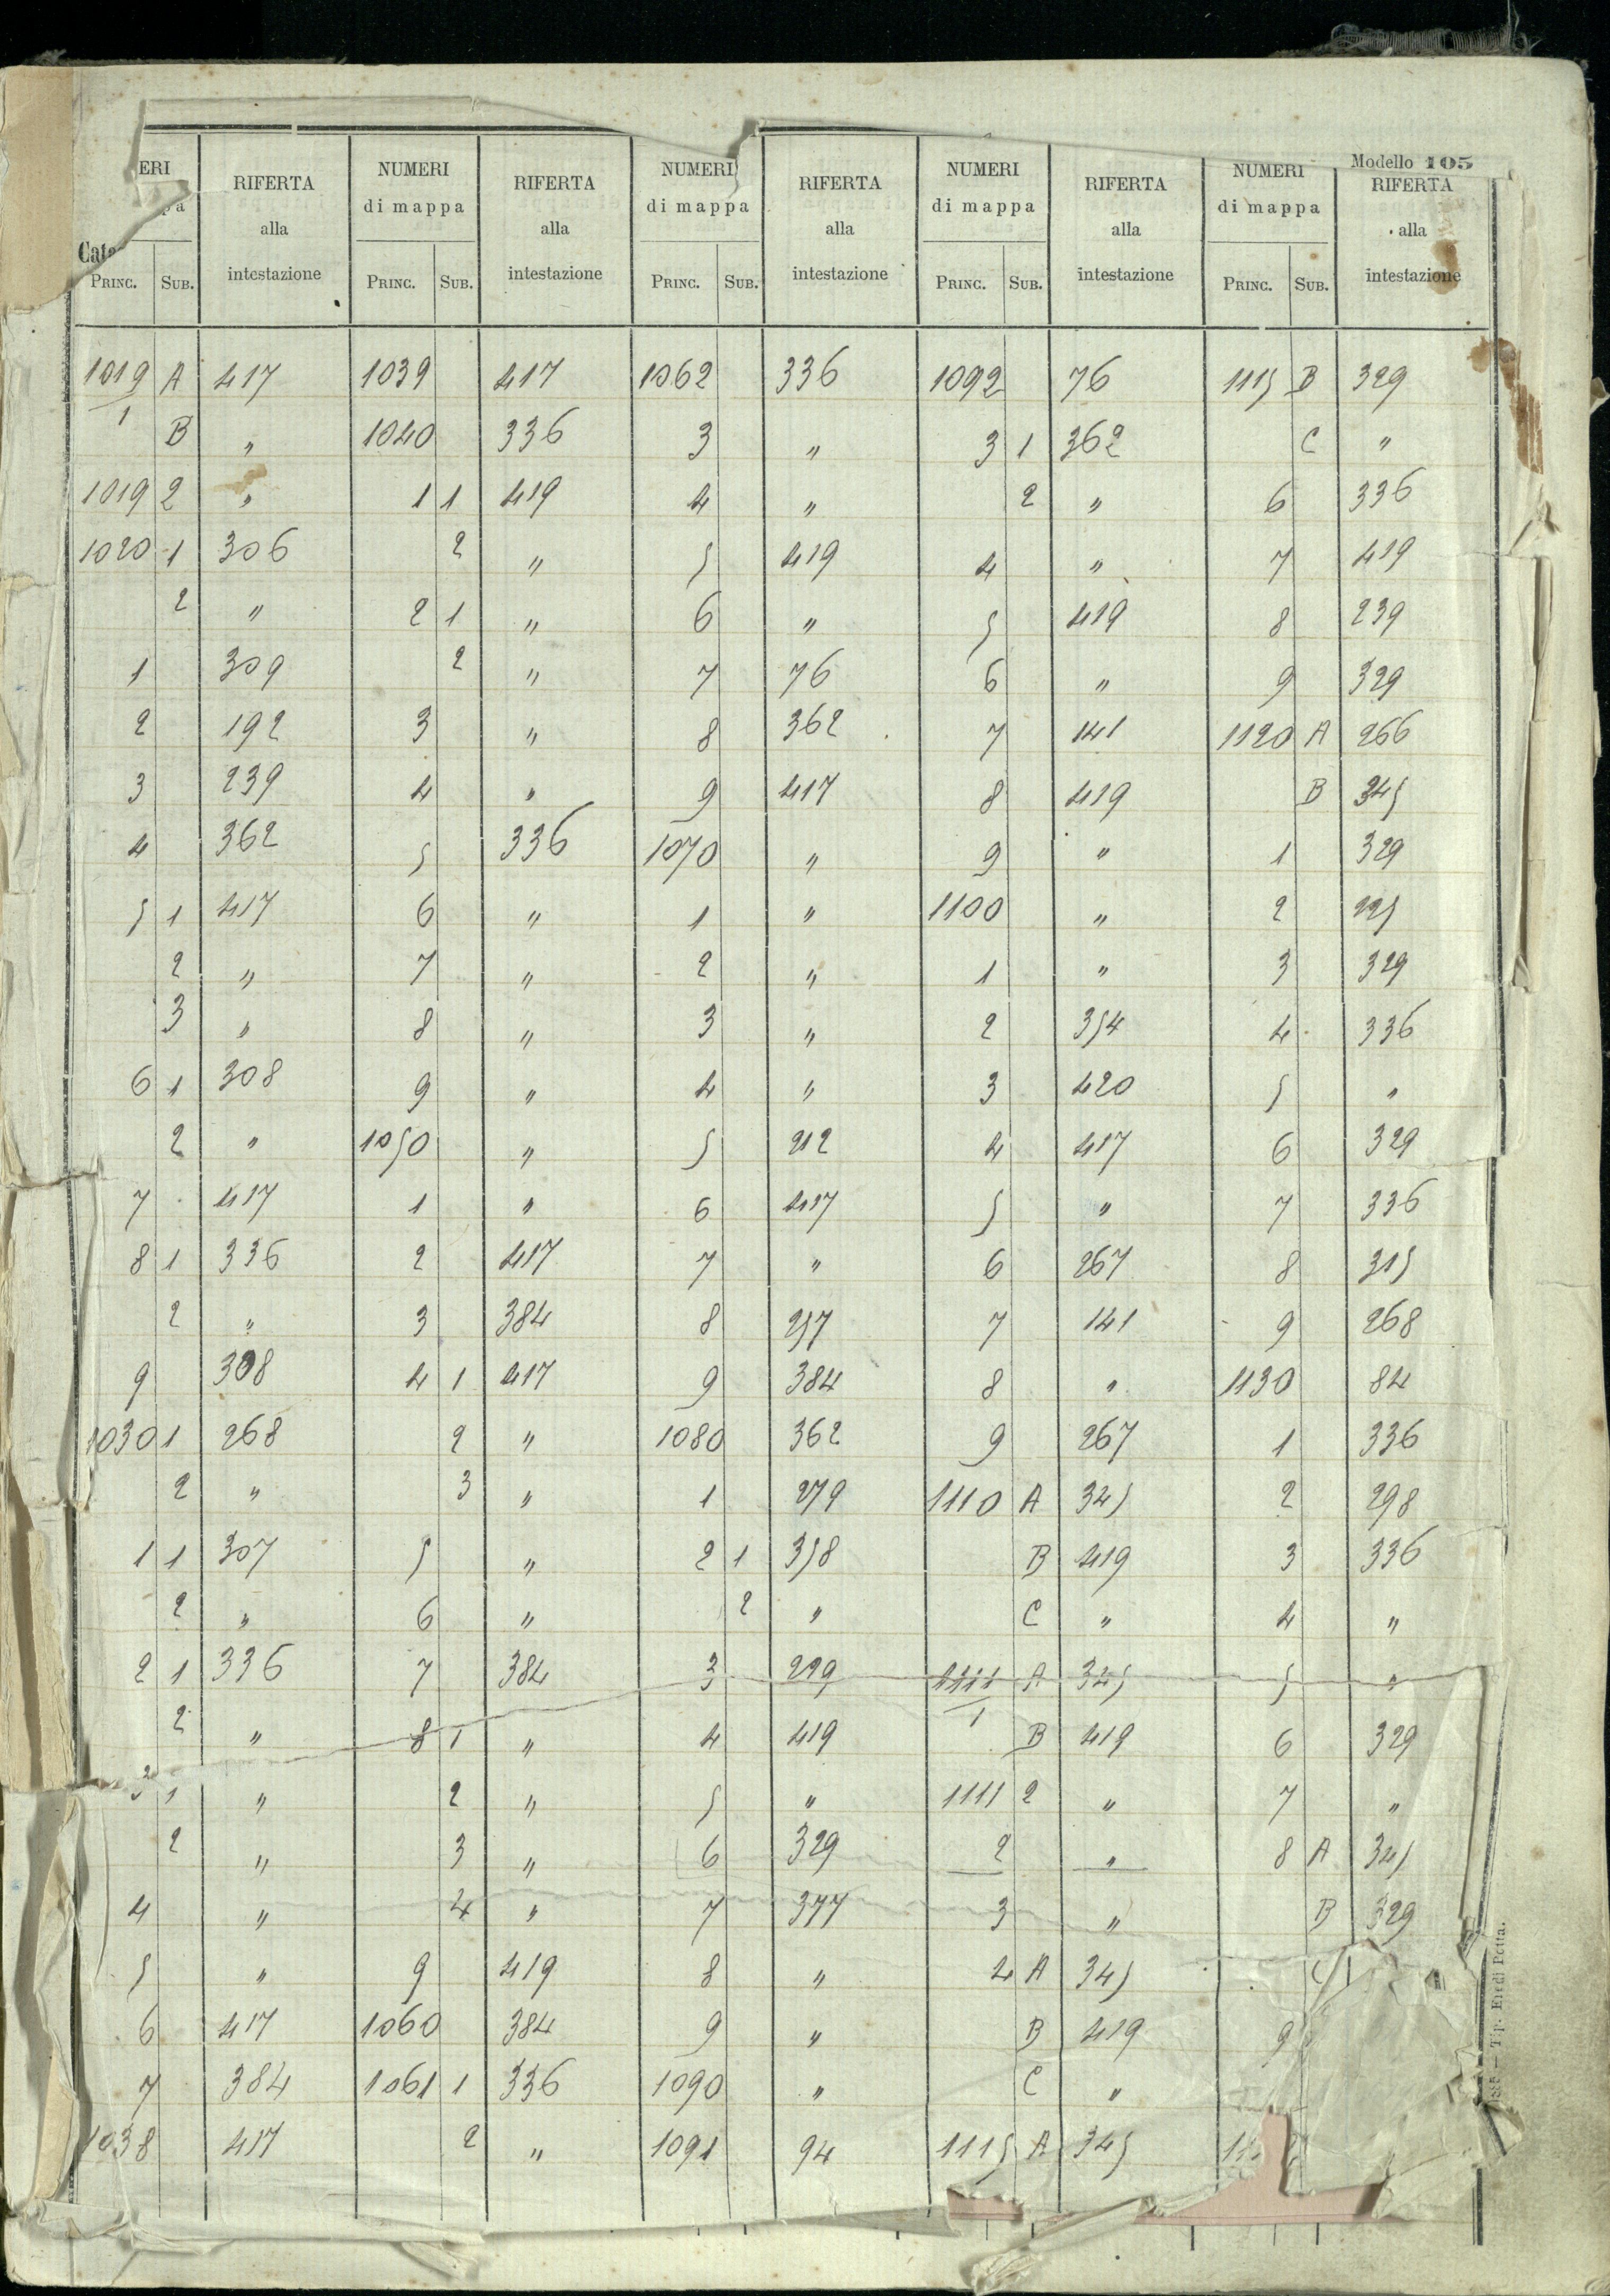 Modello 105
ERI RIFERTA NUMERI RIFERTA NUMERI RIFERTA NUMERI RIFERTA NUMERI RIFERTA
pa alla di mappa alla di mappa alla di mappa alla di mappa alla
Cata
PRINC. SUB. intestazione PRINC. SUB. intestazione PRINC. SUB. intestazione PRINC. SUB. intestazione PRINC. SUB. intestazione
1019 A 417 1039 417 1062 336 1092 76 1115 B 329
1 B " 1040 336 3 " 3 1 362 C "
1019 2 " 1 1 419 4 " 2 " 6 336
1020 1 306 2 " 5 419 4 " 7 419
2 " 2 1 " 6 " 5 419 8 239
1 309 2 " 7 76 6 " 9 329
2 192 3 " 8 362 7 141 1120 A 266
3 239 4 " 9 417 8 419 B 345
4 362 5 336 1070 " 9 " 1 329
5 1 417 6 " 1 " 1100 " 2 225
2 " 7 " 2 " 1 " 3 329
3 " 8 " 3 " 2 354 4 336
6 1 308 9 " 4 " 3 420 5 "
2 " 1050 " 5 212 4 417 6 329
7 417 1 " 6 417 5 " 7 336
8 1 336 2 417 7 " 6 267 8 315
2 " 3 384 8 257 7 141 9 268
9 308 4 1 417 9 384 8 " 1130 84
1030 1 268 2 " 1080 362 9 267 1 336
2 " 3 " 1 279 1110 A 345 2 298
1 1 307 5 " 2 1 358 B 419 3 336
2 " 6 " 2 " C " 4 "
2 1 336 7 384 3 299 1111 A 345 5 "
2 " 8 1 " 4 419 1 B 419 6 329
3 1 " 2 " 5 " 1111 2 " 7 "
2 " 3 " 6 329 2 " 8 A 345
4 " 4 " 7 377 3 " B 329
5 " 9 419 8 " 4 A 345 C
6 417 1060 384 9 " B 419 9
7 384 1061 1 336 1090 " C "
1038 417 2 " 1091 94 1115 A 345
Tip. Eredi Botta.